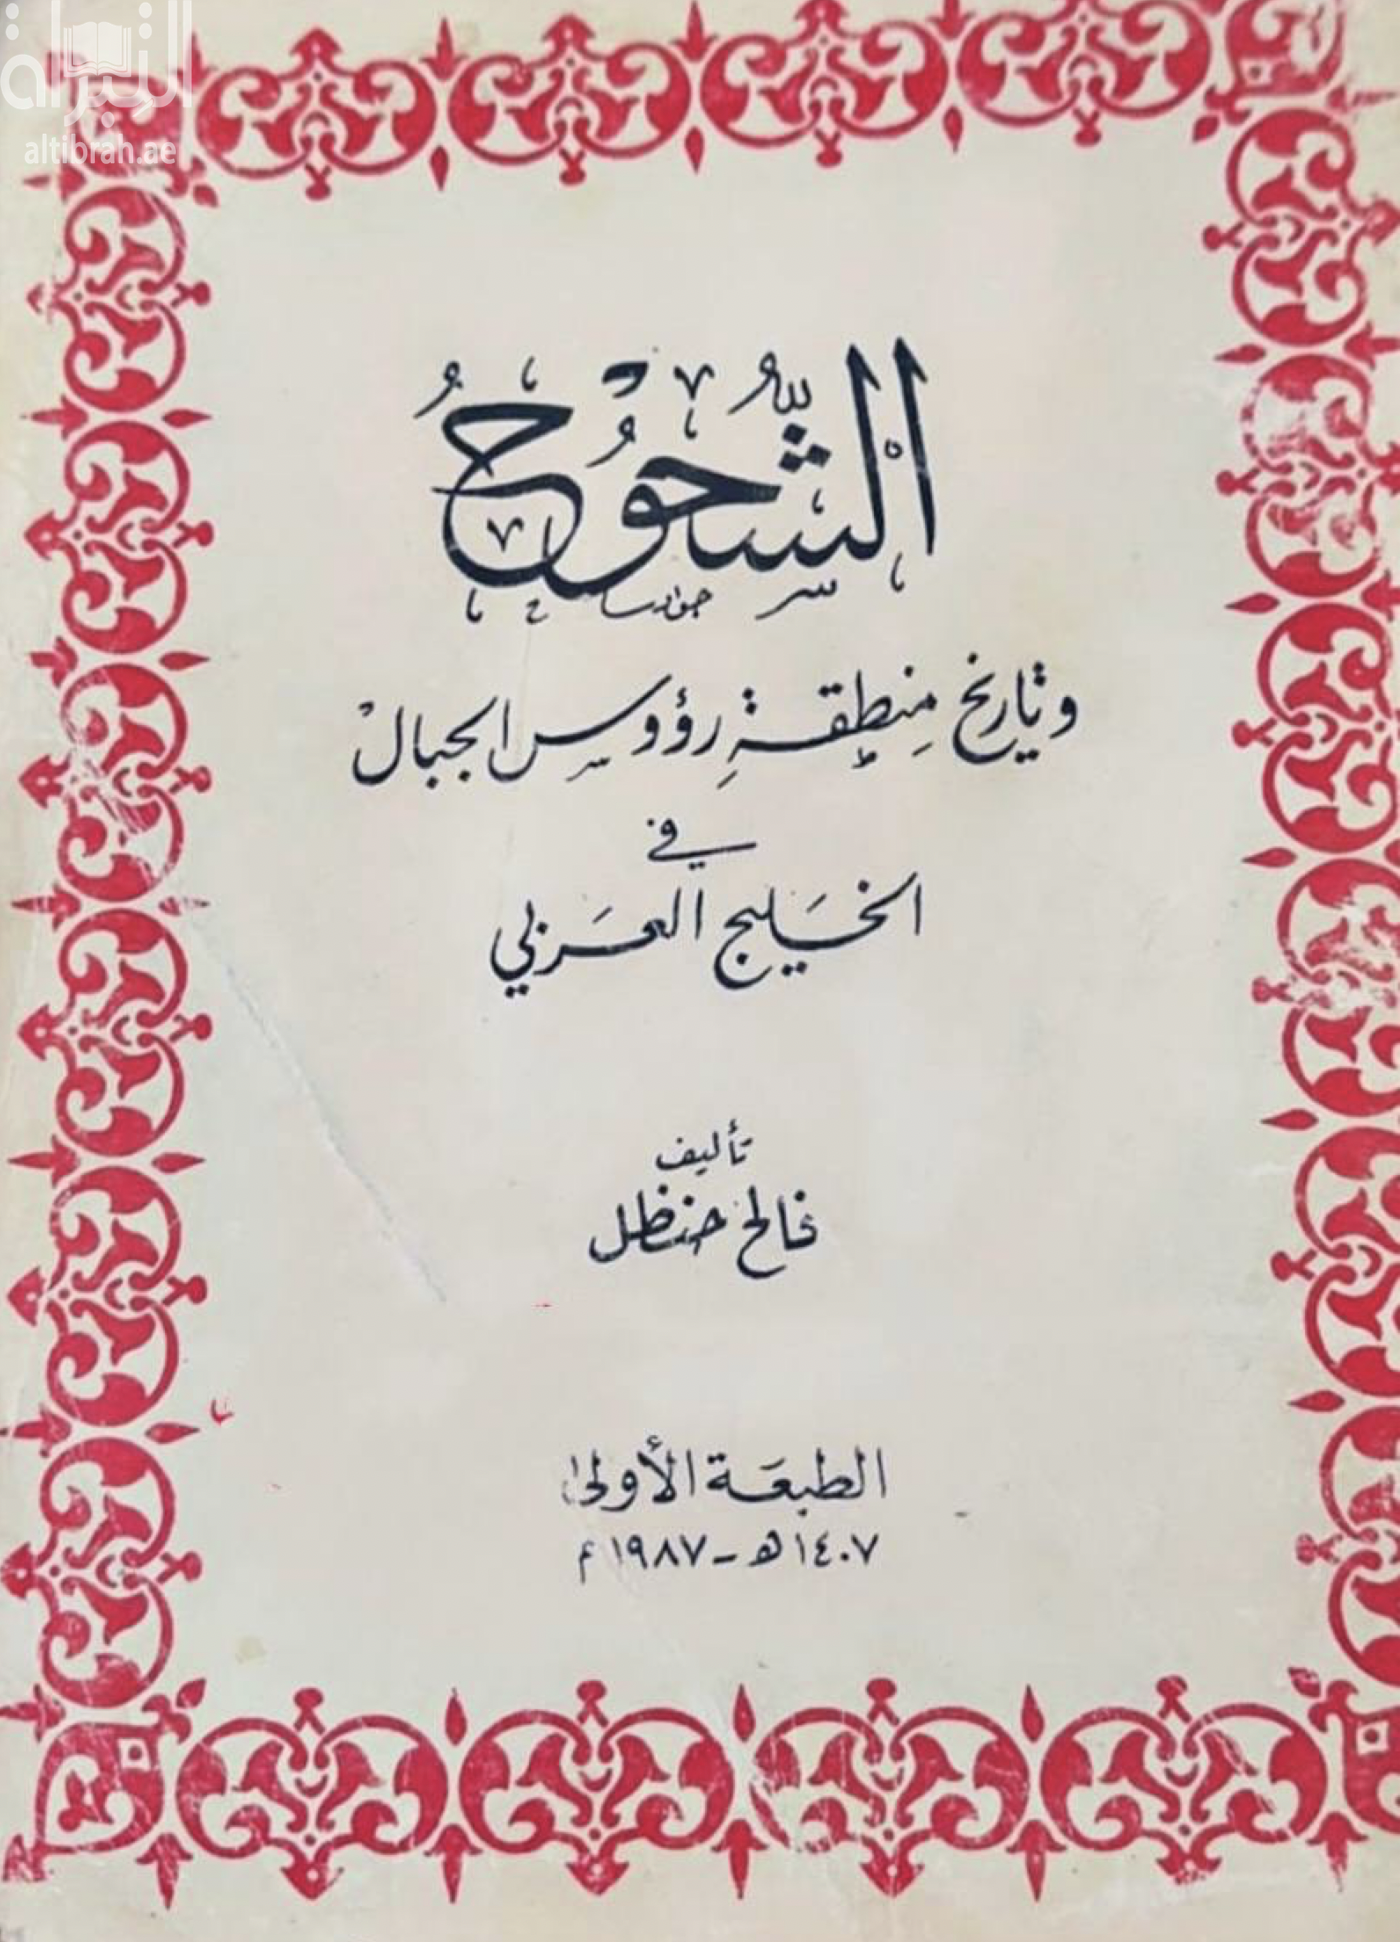 التراه
altibrah.ae
الشُّحُوحُ
وتاريخ منطقة رؤوس الجبال
في
الخليج العربي
تأليف
فالح حنظل
الطبعة الأولى
١٤٠٧ هـ - ١٩٨٧ م